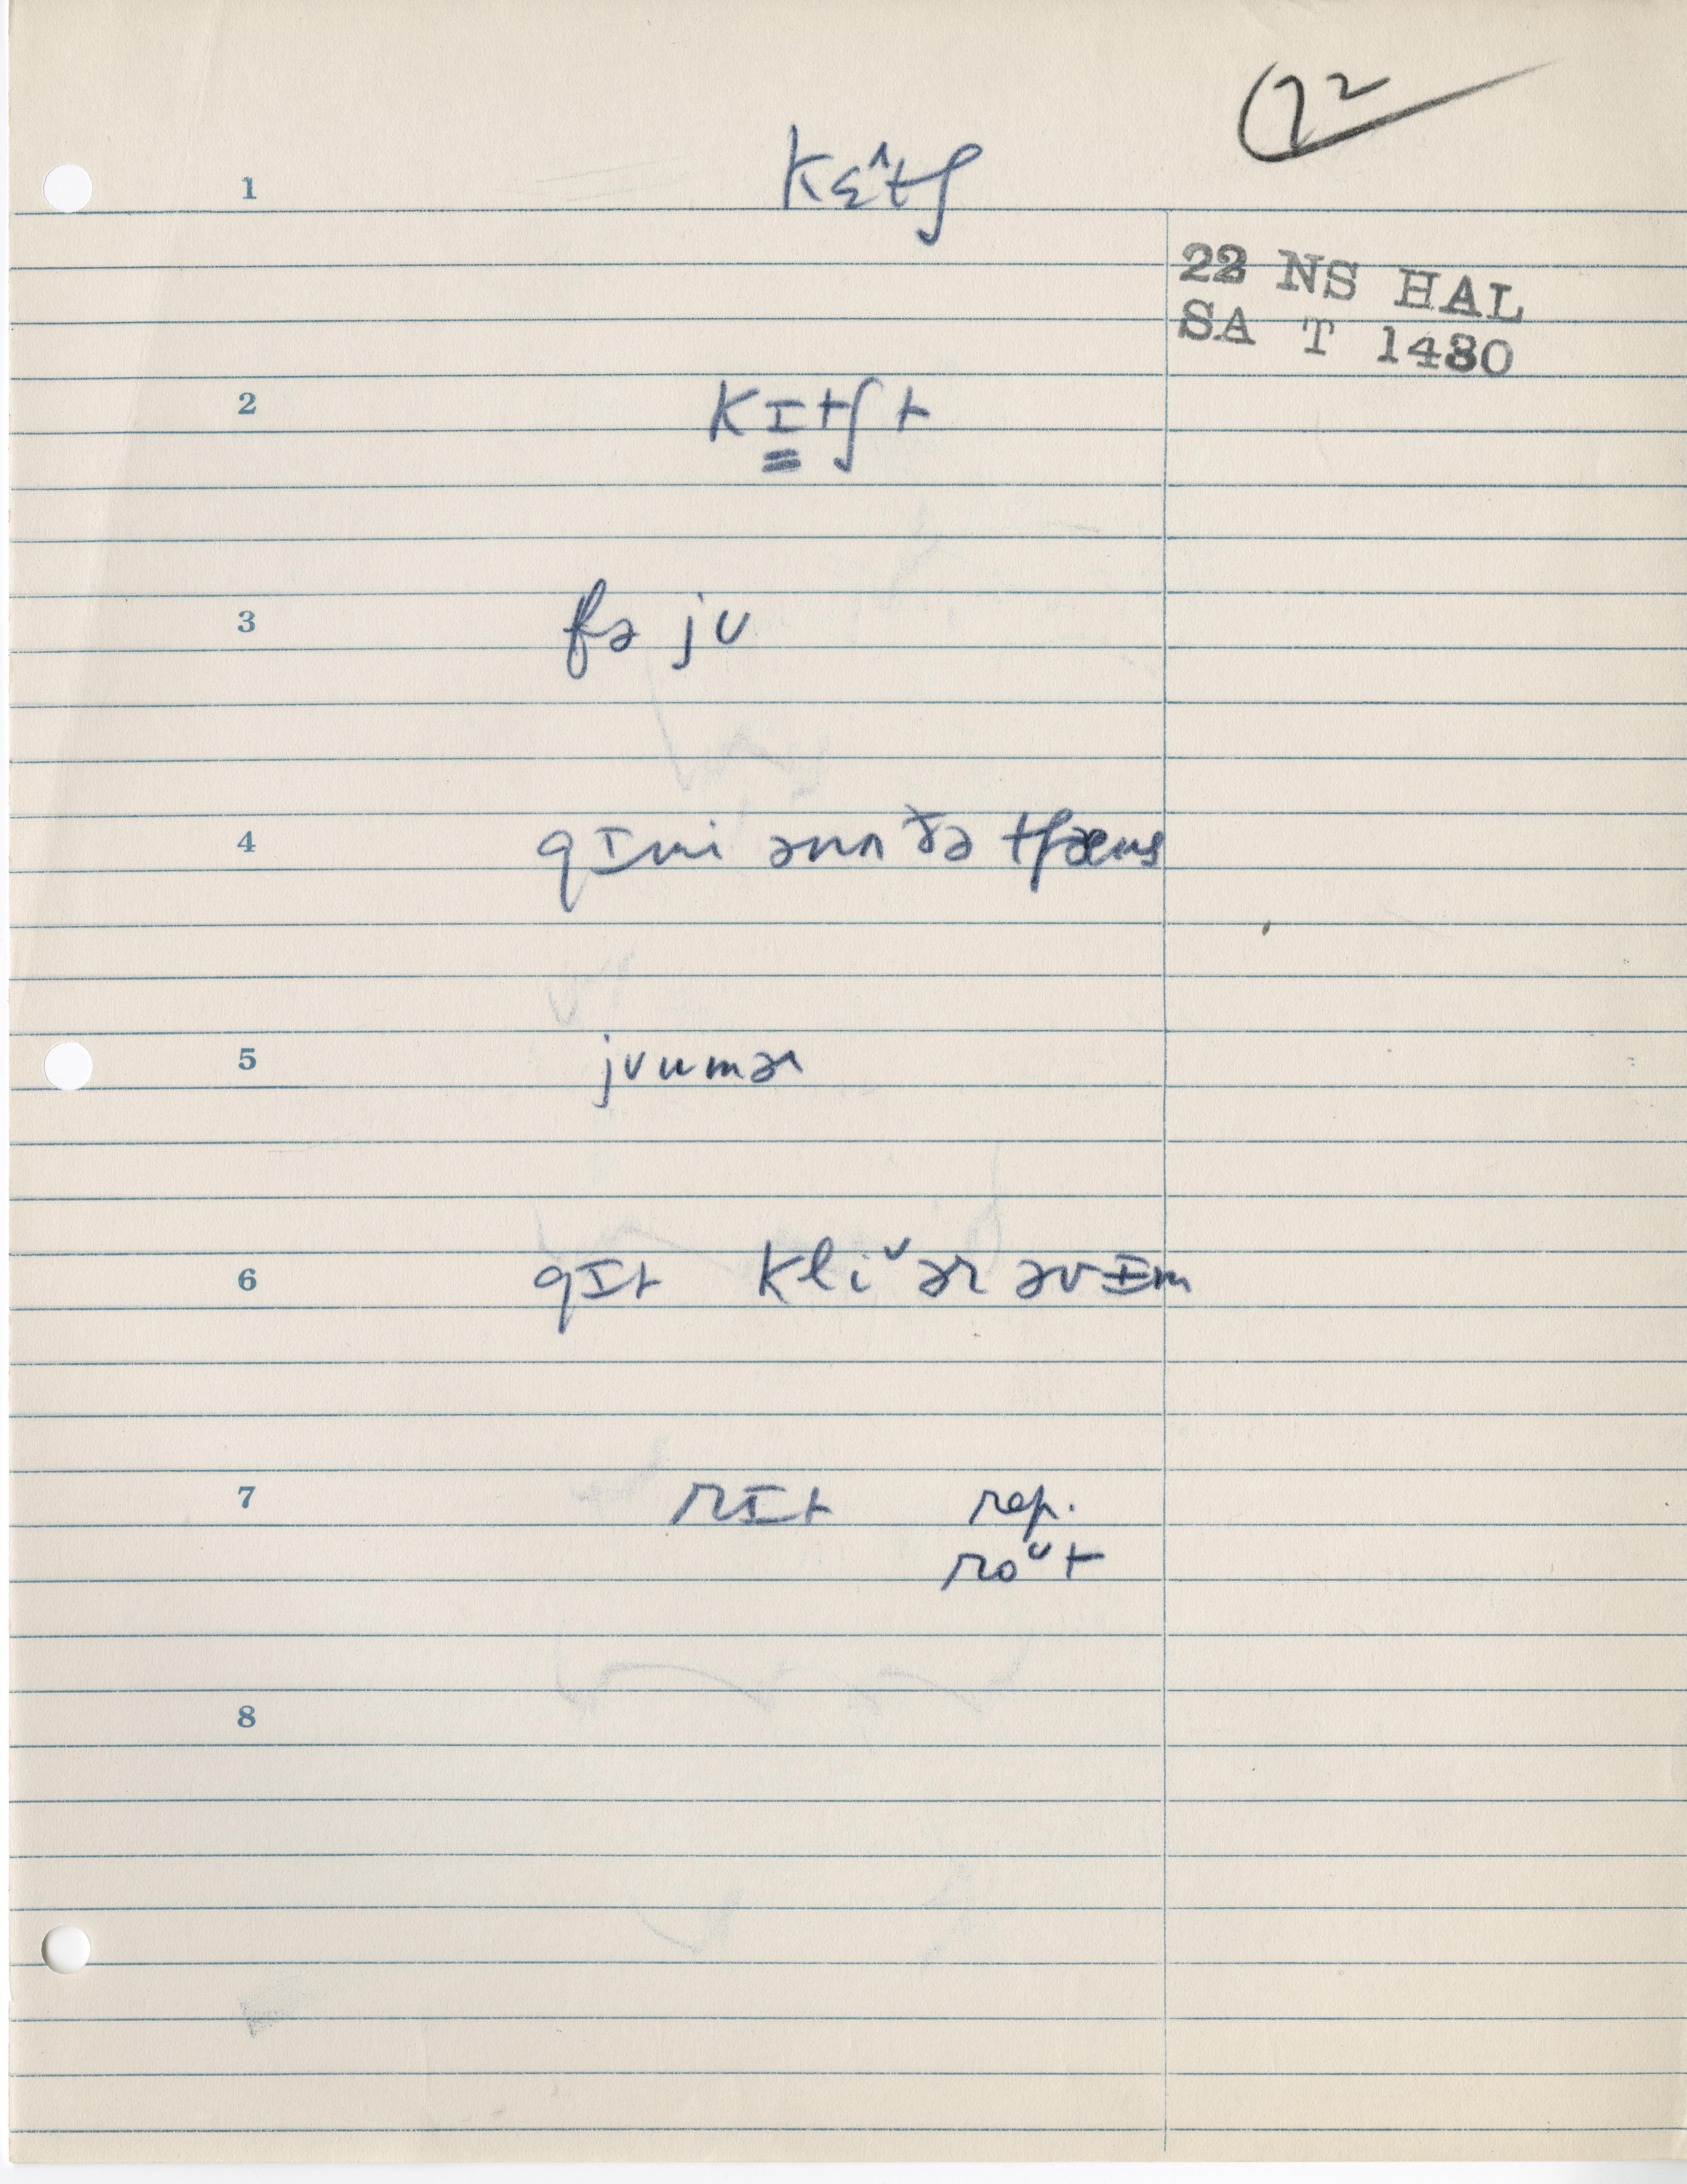 72
1 kɛ^tʃ
22 NS HAL
SA T 1480
2 kɪtʃt
3 fə jʊ
4 gɪmi ənʌðə tʃæns
5 jʊumər
6 gɪt kliᵛər əv ɪm
7 rɪt rep.
roᵘt
8